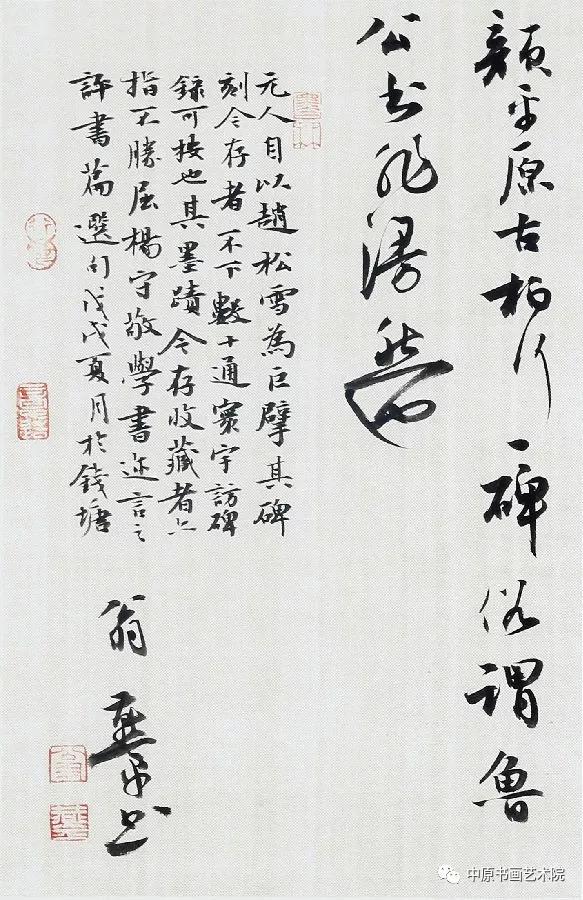 顏平原古柏行一碑俗謂魯
公書非漫然也
元人自以趙松雪為巨擘其碑
刻今存者不下數十通寰宇訪碑
錄可按也其墨蹟今存收藏者亦
指不勝屈楊守敬學書迩言之
評書篇選句戊戌夏月於錢塘
翁 書
中原书画艺术院